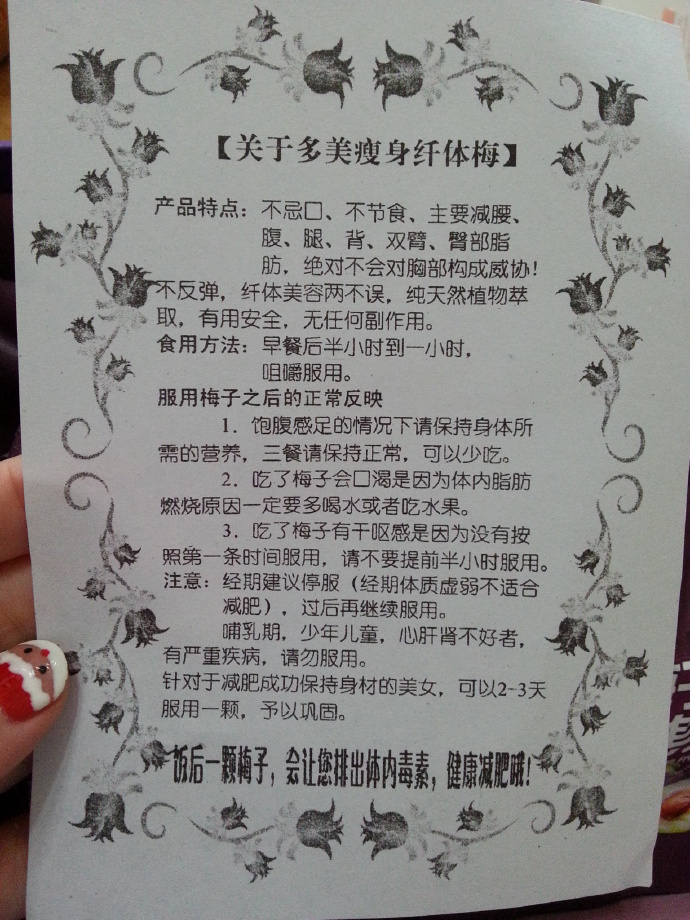 【关于多美瘦身纤体梅】
产品特点：不忌口、不节食、主要减腰、
腹、腿、背、双臂、臀部脂
肪，绝对不会对胸部构成威协！
不反弹，纤体美容两不误，纯天然植物萃
取，有用安全，无任何副作用。
食用方法：早餐后半小时到一小时，
咀嚼服用。
服用梅子之后的正常反映
1．饱腹感足的情况下请保持身体所
需的营养，三餐请保持正常，可以少吃。
2．吃了梅子会口渴是因为体内脂肪
燃烧原因一定要多喝水或者吃水果。
3．吃了梅子有干呕感是因为没有按
照第一条时间服用，请不要提前半小时服用。
注意：经期建议停服（经期体质虚弱不适合
减肥），过后再继续服用。
哺乳期，少年儿童，心肝肾不好者，
有严重疾病，请勿服用。
针对于减肥成功保持身材的美女，可以2-3天
服用一颗，予以巩固。
饭后一颗梅子，会让您排出体内毒素，健康减肥哦！